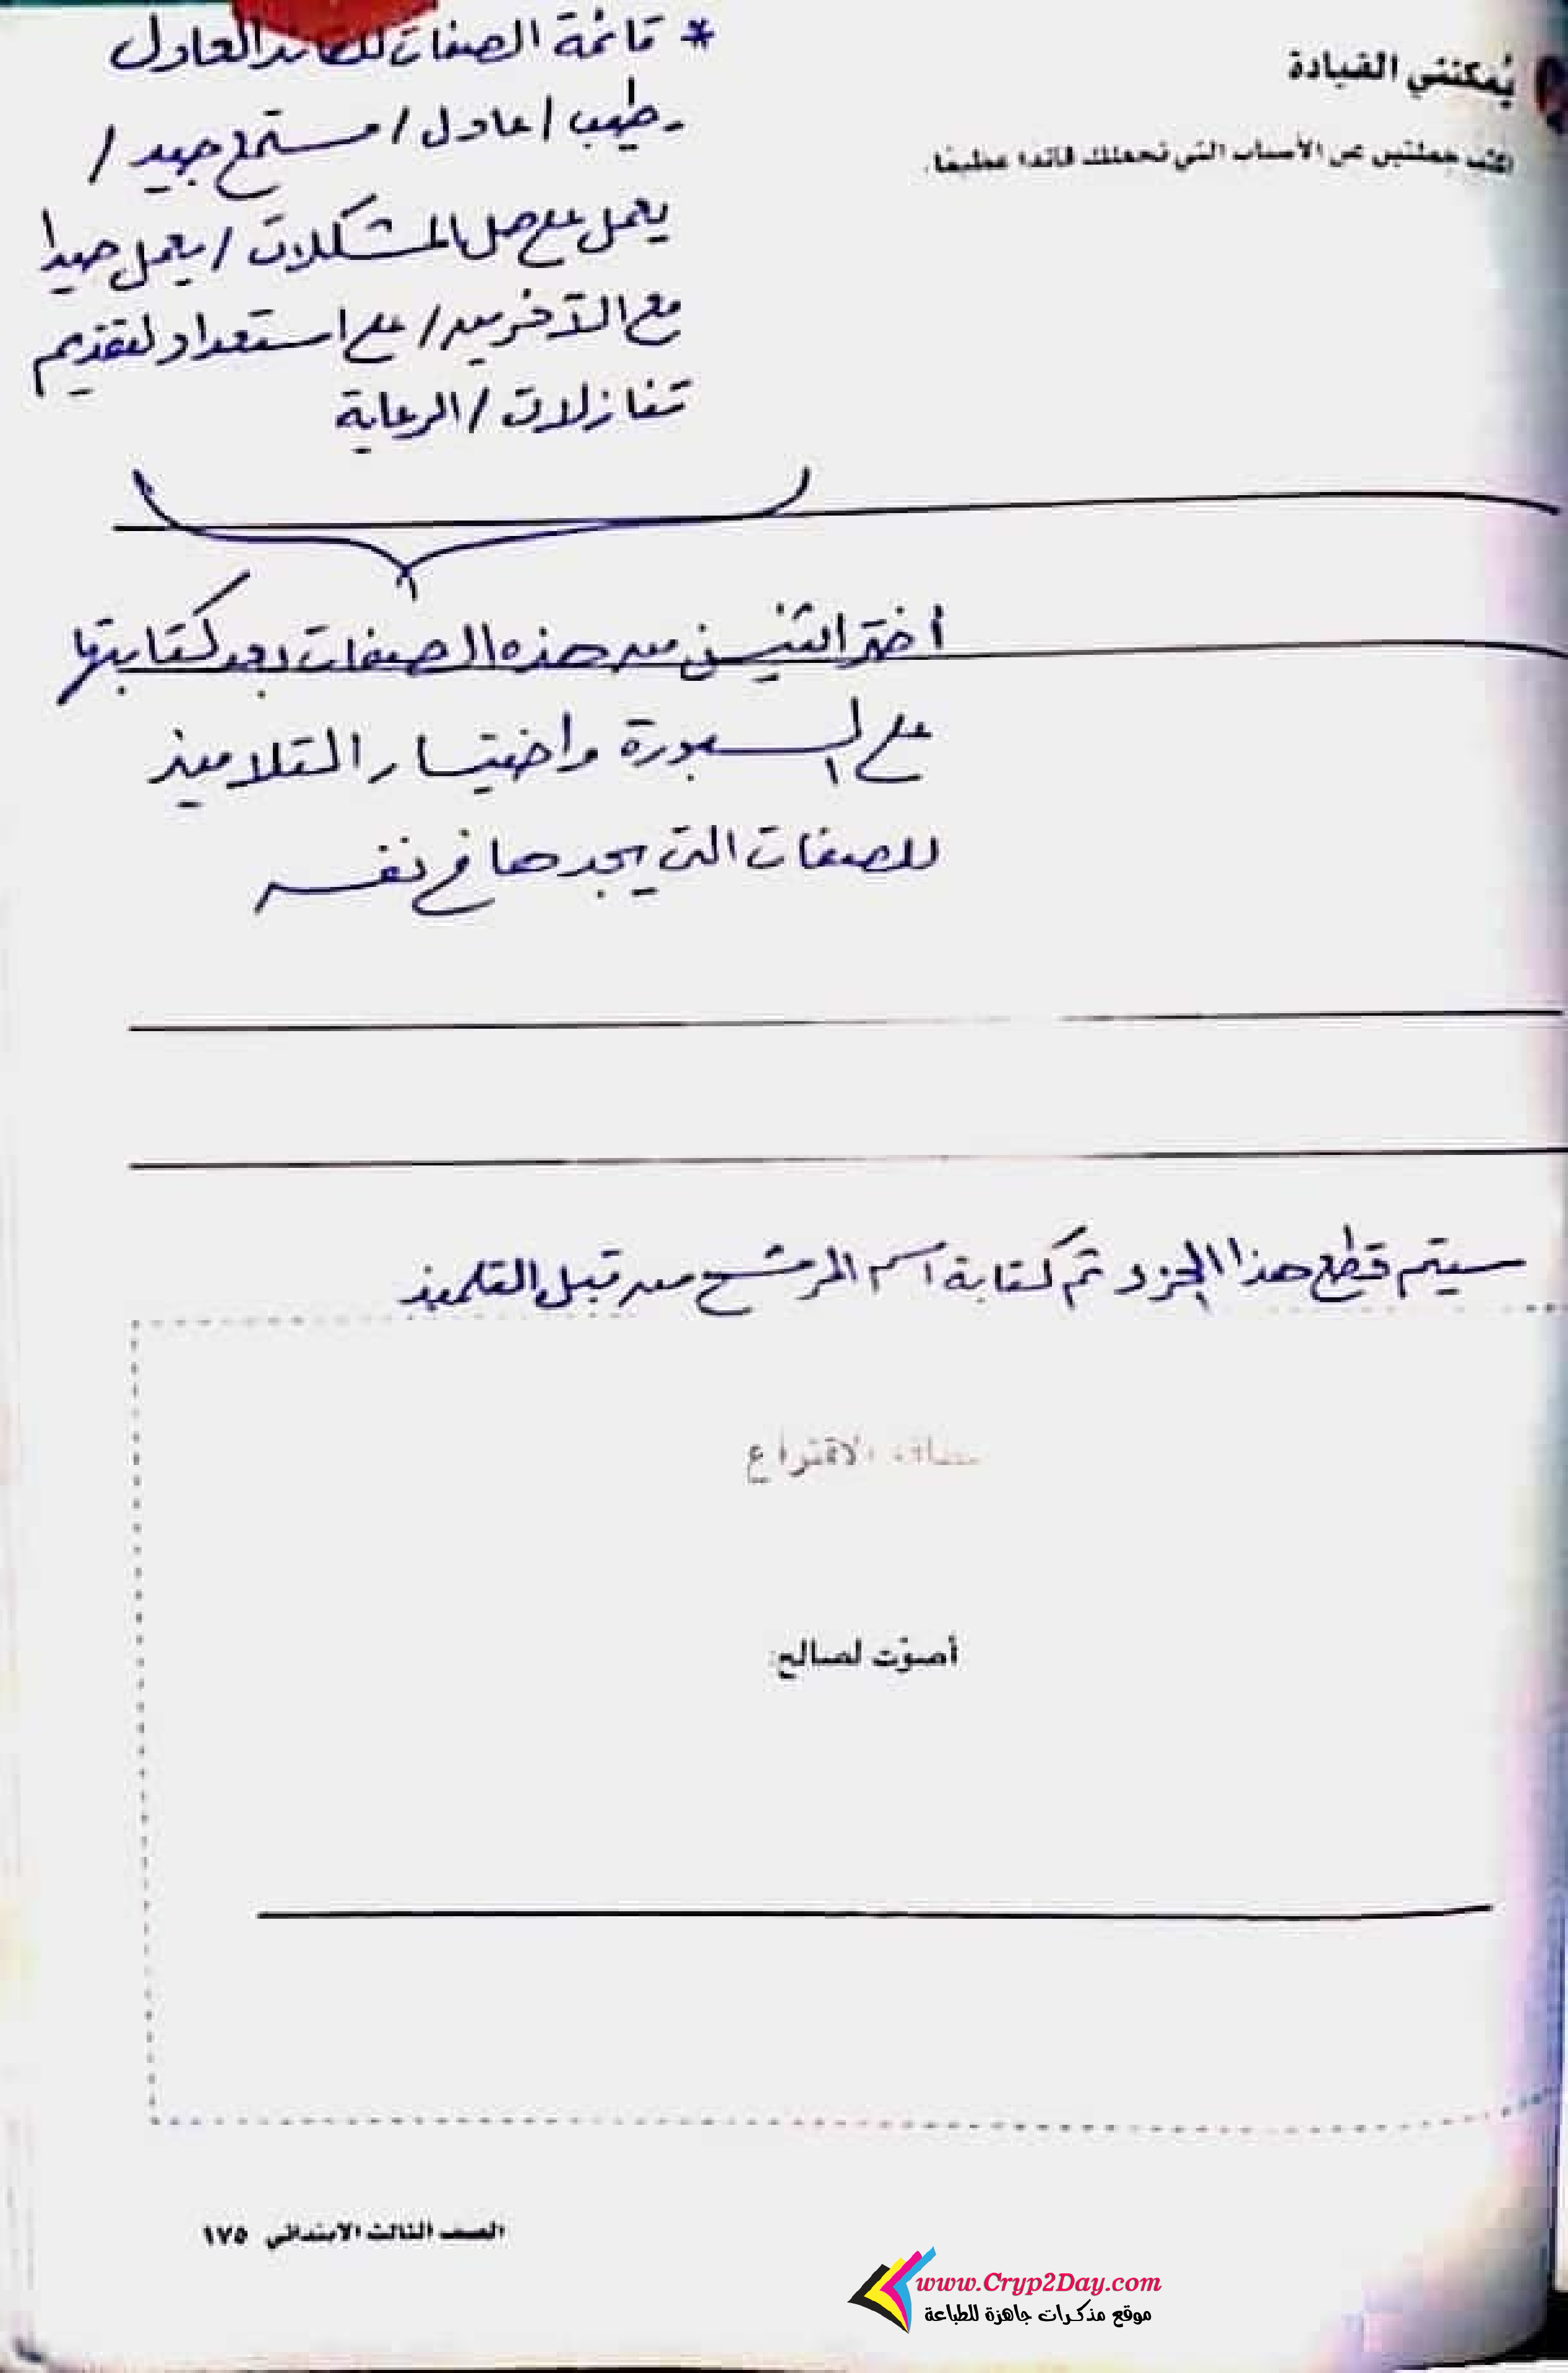 يُمكنني القيادة
اكتب جملتين عن الأسباب التي تجعلك قائدا عظيمًا.
* قائمة الصفات للقائد العادل
- طيب / عادل / مستمع جيد /
يعمل على حل المشكلات / يعمل جيدا
مع الآخرين / على استعداد لتقديم
تنازلات / الرعاية
أختر اثنين من هذه الصفات بعد كتابتها
على السبورة واختيار التلاميذ
للصفات التى يجدها فى نفسه
سيتم قطع هذا الجزء ثم كتابة اسم المرشح من قبل التلميذ
بطاقة الاقتراع
أصوّت لصالح:
الصف الثالث الابتدائي ١٧٥
www.Cryp2Day.com
موقع مذكرات جاهزة للطباعة